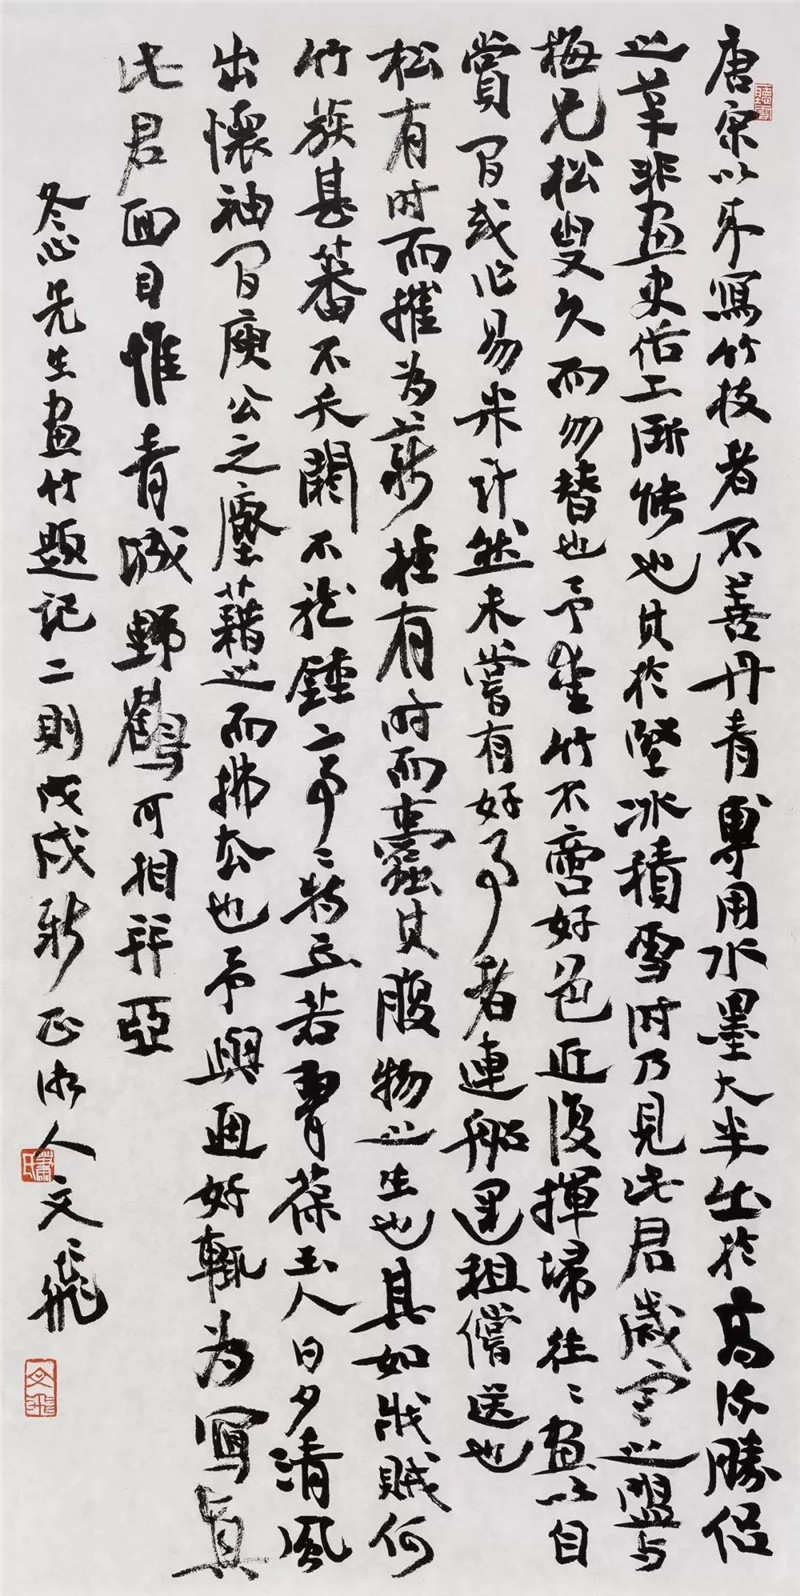 唐宋以来寫竹枝者不善丹青專用水墨大半出於高流勝侶
之筆非画史俗工所能也其於堅冰積雪時乃見此君歲寒之盟与
梅兄松叟久而勿替也予愛竹不啻好色近復揮埽往〻画以自
賞間或作易米計然未嘗有好事者連船運租償送也
松有時而摧為薪桂有時而蠹其腹物之生也其如戕賊何
竹族甚蕃不夭閼不龍鍾亭〻特立若青葆玉人日夕清風
出懷袖間庾公之塵藉之而拂去也予興適好輒為寫真
此君面目惟青城野鶴可相并亞
冬心先生画竹題記二則戊戌新正湘人文飛
文飛